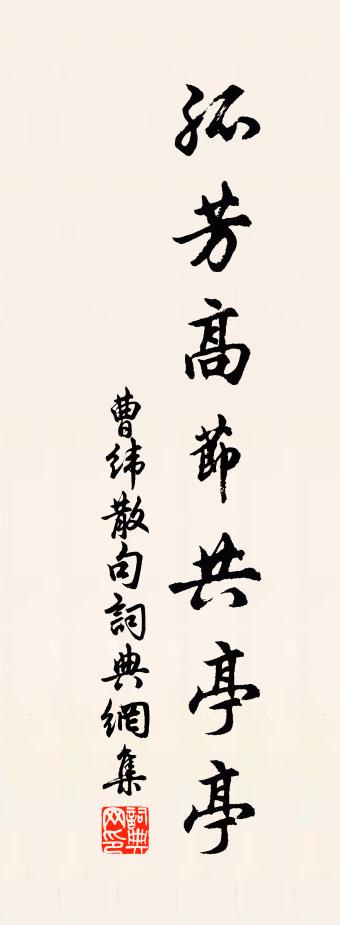 孤芳高節共亭亭
曹緯散句詞典網集
詞典网印